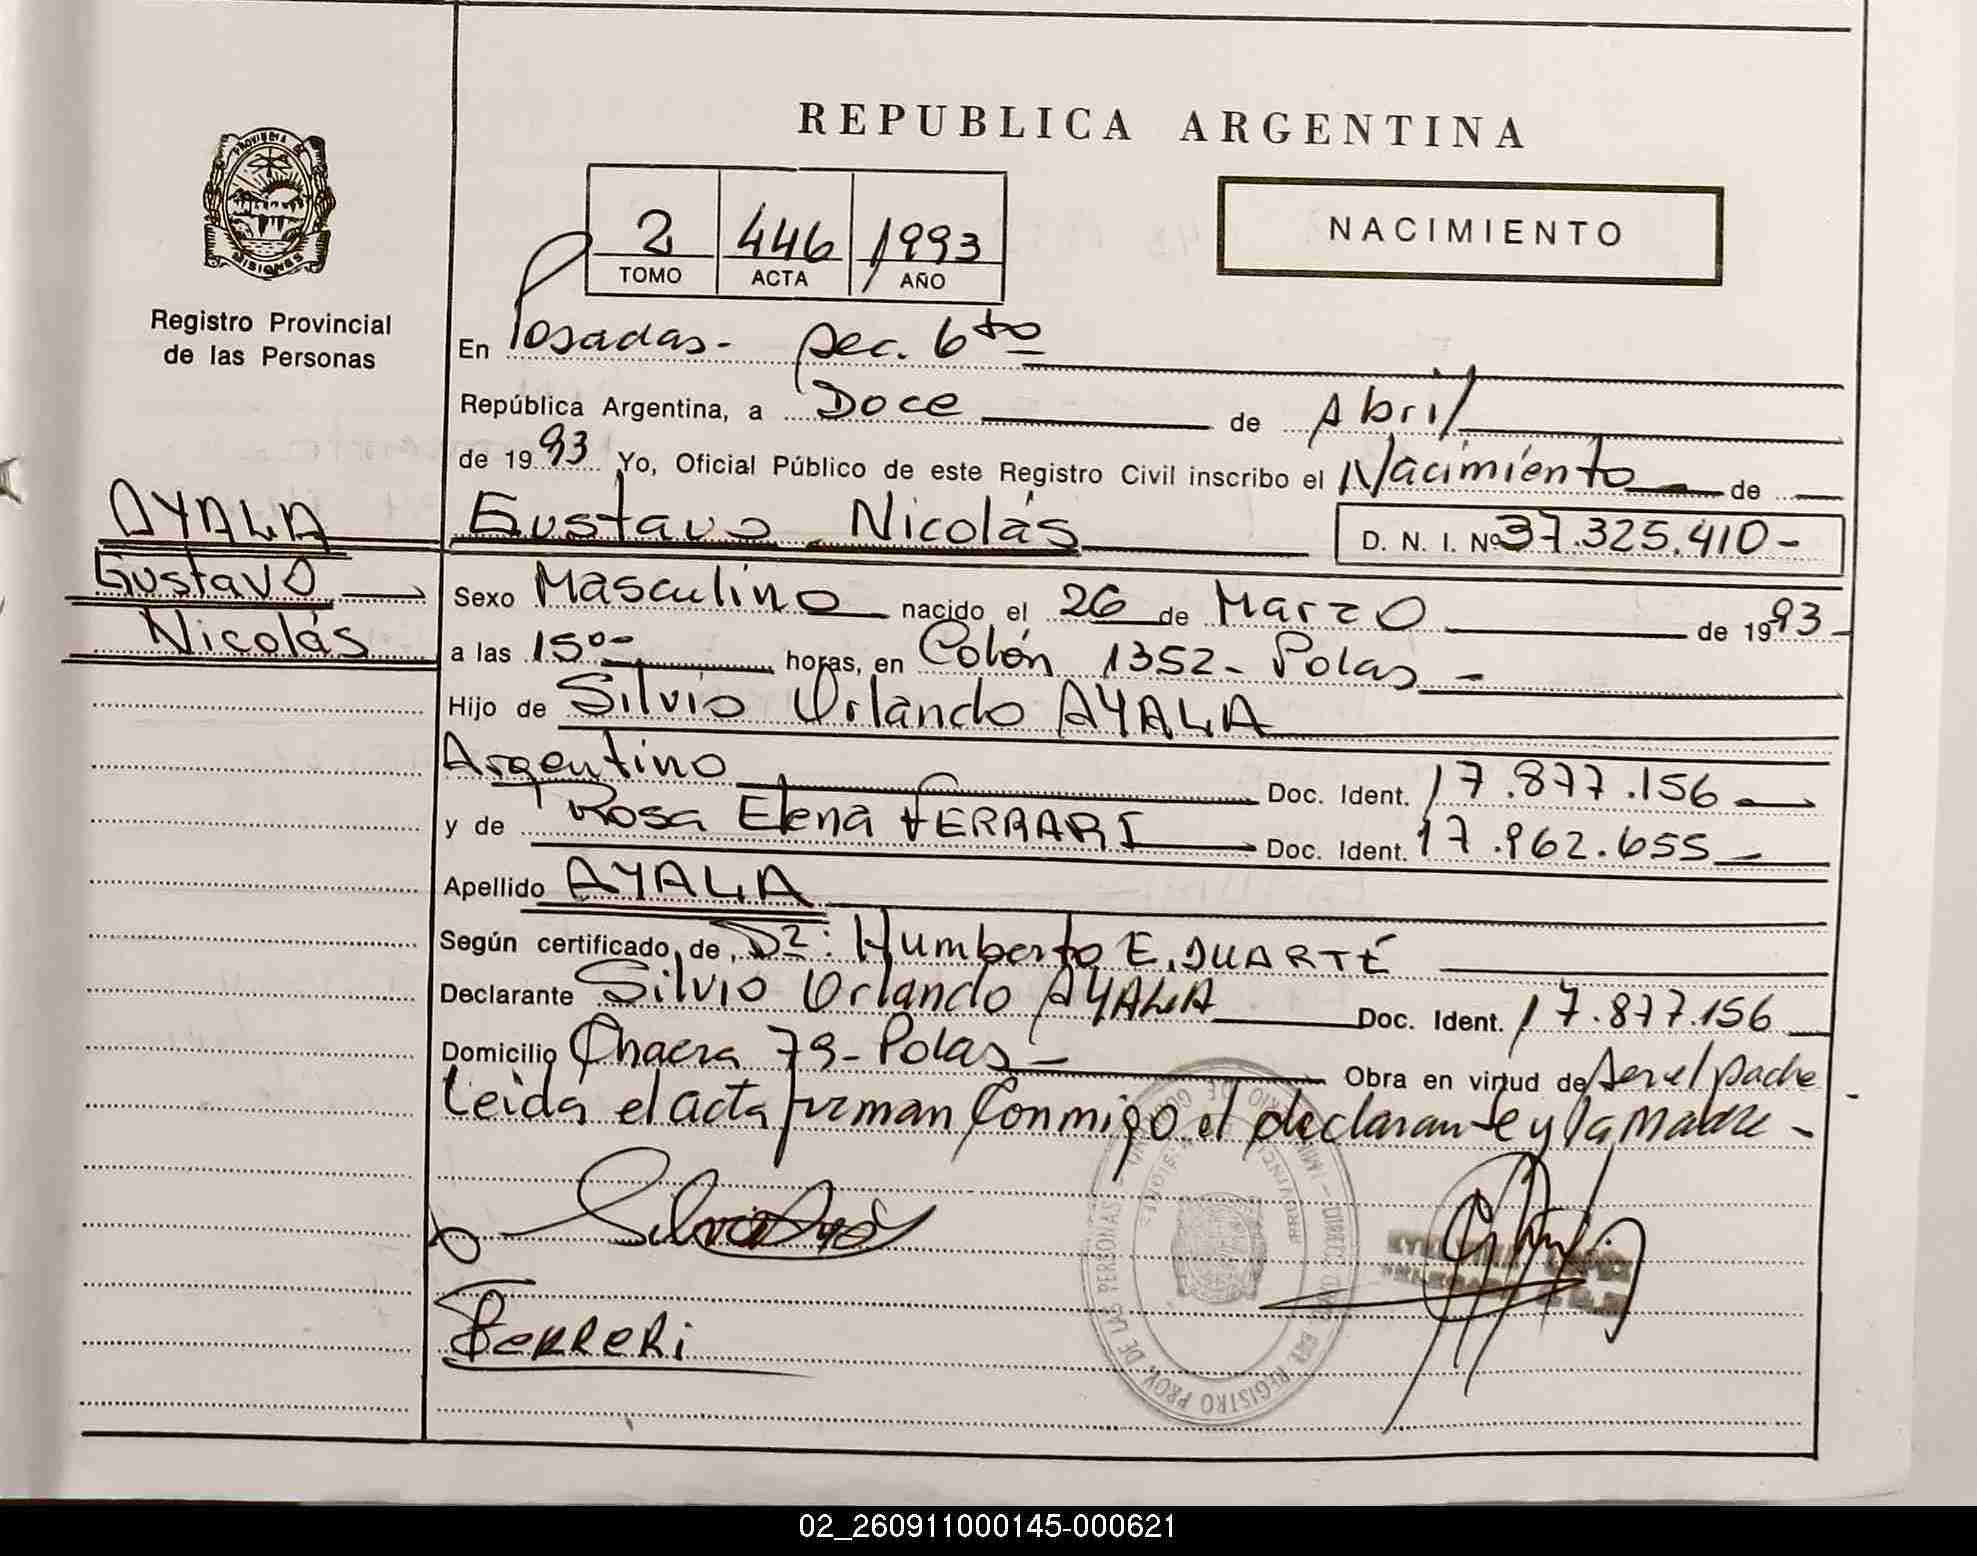 REPUBLICA ARGENTINA
PROVINCIA DE
MISIONES
Registro Provincial
de las Personas
NACIMIENTO
2 446 1993
TOMO ACTA AÑO
En Posadas- Sec. 6to
República Argentina, a Doce de Abril
de 1993 Yo, Oficial Público de este Registro Civil inscribo el Nacimiento de
Gustavo Nicolás D. N. I. Nº 37.325.410-
AYALA
Gustavo
Nicolás
Sexo Masculino nacido el 26 de Marzo de 1993
a las 15⁰⁰ horas, en Colón 1352- Pdas -
Hijo de Silvio Orlando AYALA
Argentino Doc. Ident. 17.877.156
y de Rosa Elena FERRARI Doc. Ident. 17.962.655
Apellido AYALA
Según certificado de Dr: Humberto E. DUARTE
Declarante Silvio Orlando AYALA Doc. Ident. 17.877.156
Domicilio Chacra 79- Pdas - Obra en virtud de Ser el padre
Leida el acta firman Conmigo el declarante y la Madre -
FERRERi
02_260911000145-000621